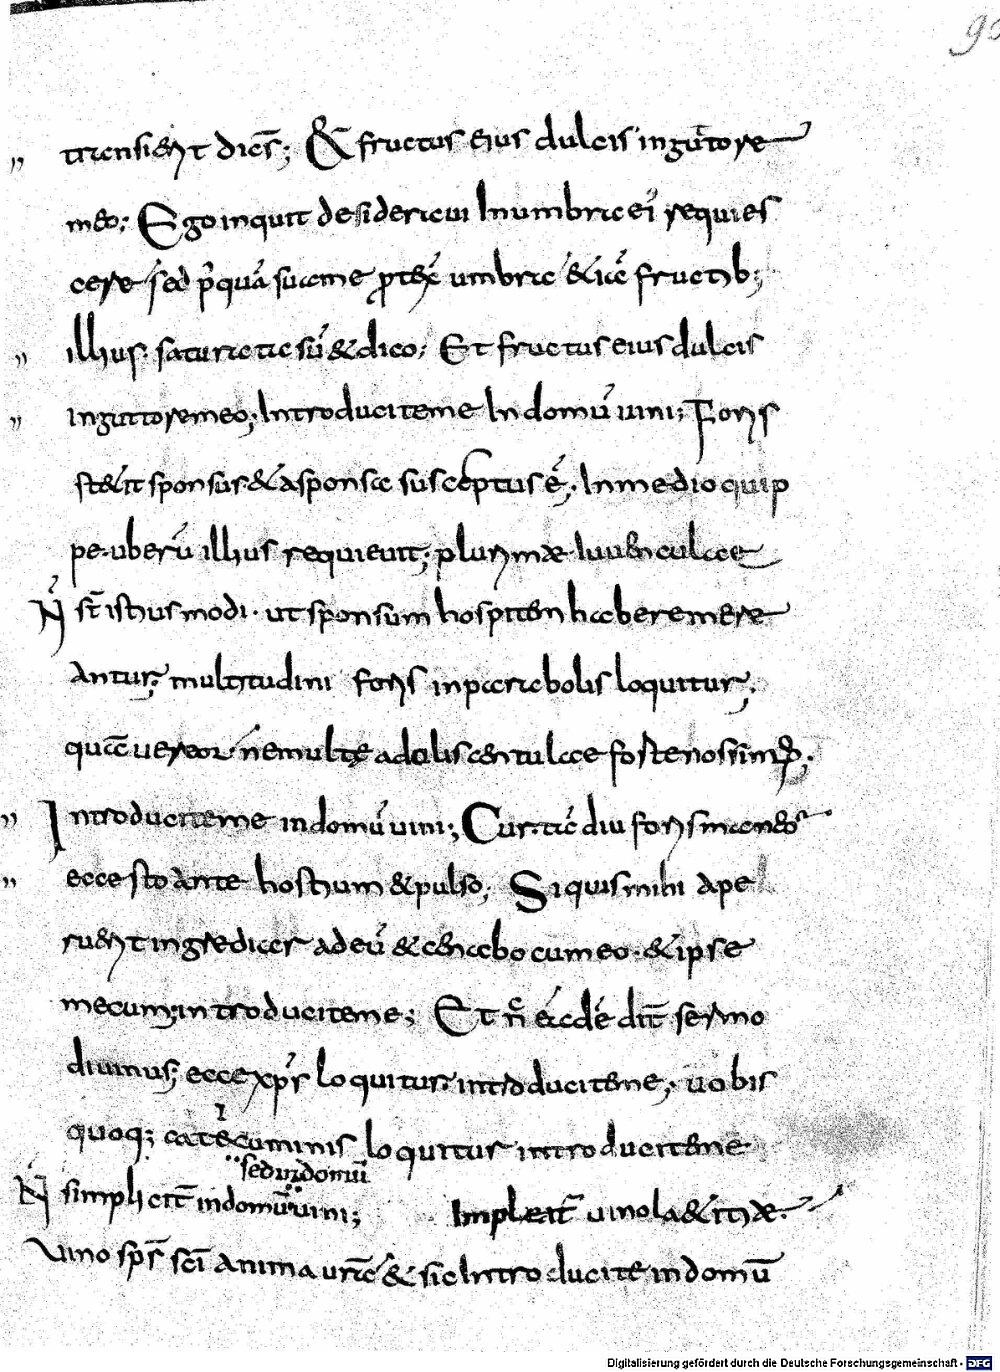 90
transierit dieſ; & fructus eius dulcis in guttore
meo; Ego inquit desideraui In umbra ei' requies
cere sed p'quā suame prothex umbrae & iā fructib;
illius saturata sū & dico; Et fructus eius dulcis
in guttore meo; Introducite me In domū uini; Foris
stetit sponsus & a sponsa susceptus ē; In medio quip
pe uberū illius requieuit; plurimæ iuuenculae
N̄ st̄ istius modi. ut sponsum hospitem habere mere
antur; multitudini foris in parabolis loquitur;
quā uereor ne multę adoliscentulae forte nos simus;
Introducite me in domū uini; Cur tā diu foris maneo
ecce sto ante hostium & pulso; Si quis mihi ape
ruerit ingrediar ad eū & cenabo cum eo. & ipse
mecum; introducite me; Et nc̄ eadē dīt sermo
diuinus; ecce xp̄s loquitur introducite me; uobis
quoq; catecuminis loquitur introducite me
i
sed in domū
N̄ simplicit̄ in domū uini; Impleat̄ uino læticiæ
Vino sp̄s sc̄i anima ur̄a & sic Introducite in domū
Digitalisierung gefördert durch die Deutsche Forschungsgemeinschaft - DFG